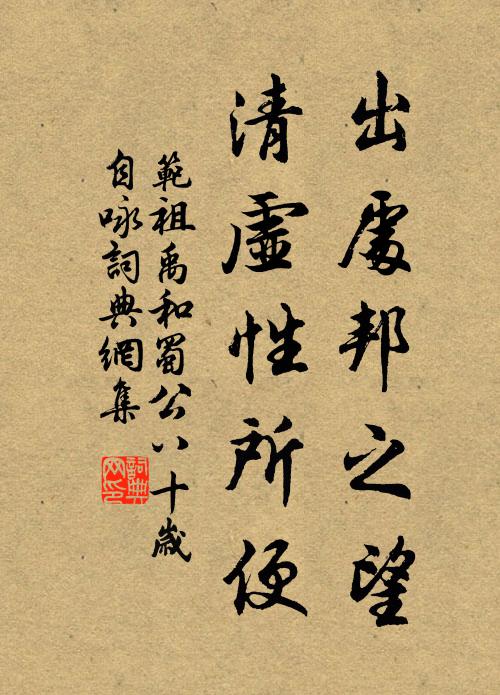 出處邦之望
清虛性所便
範祖禹和蜀公八十歲
自咏詞典網集
詞典
网印